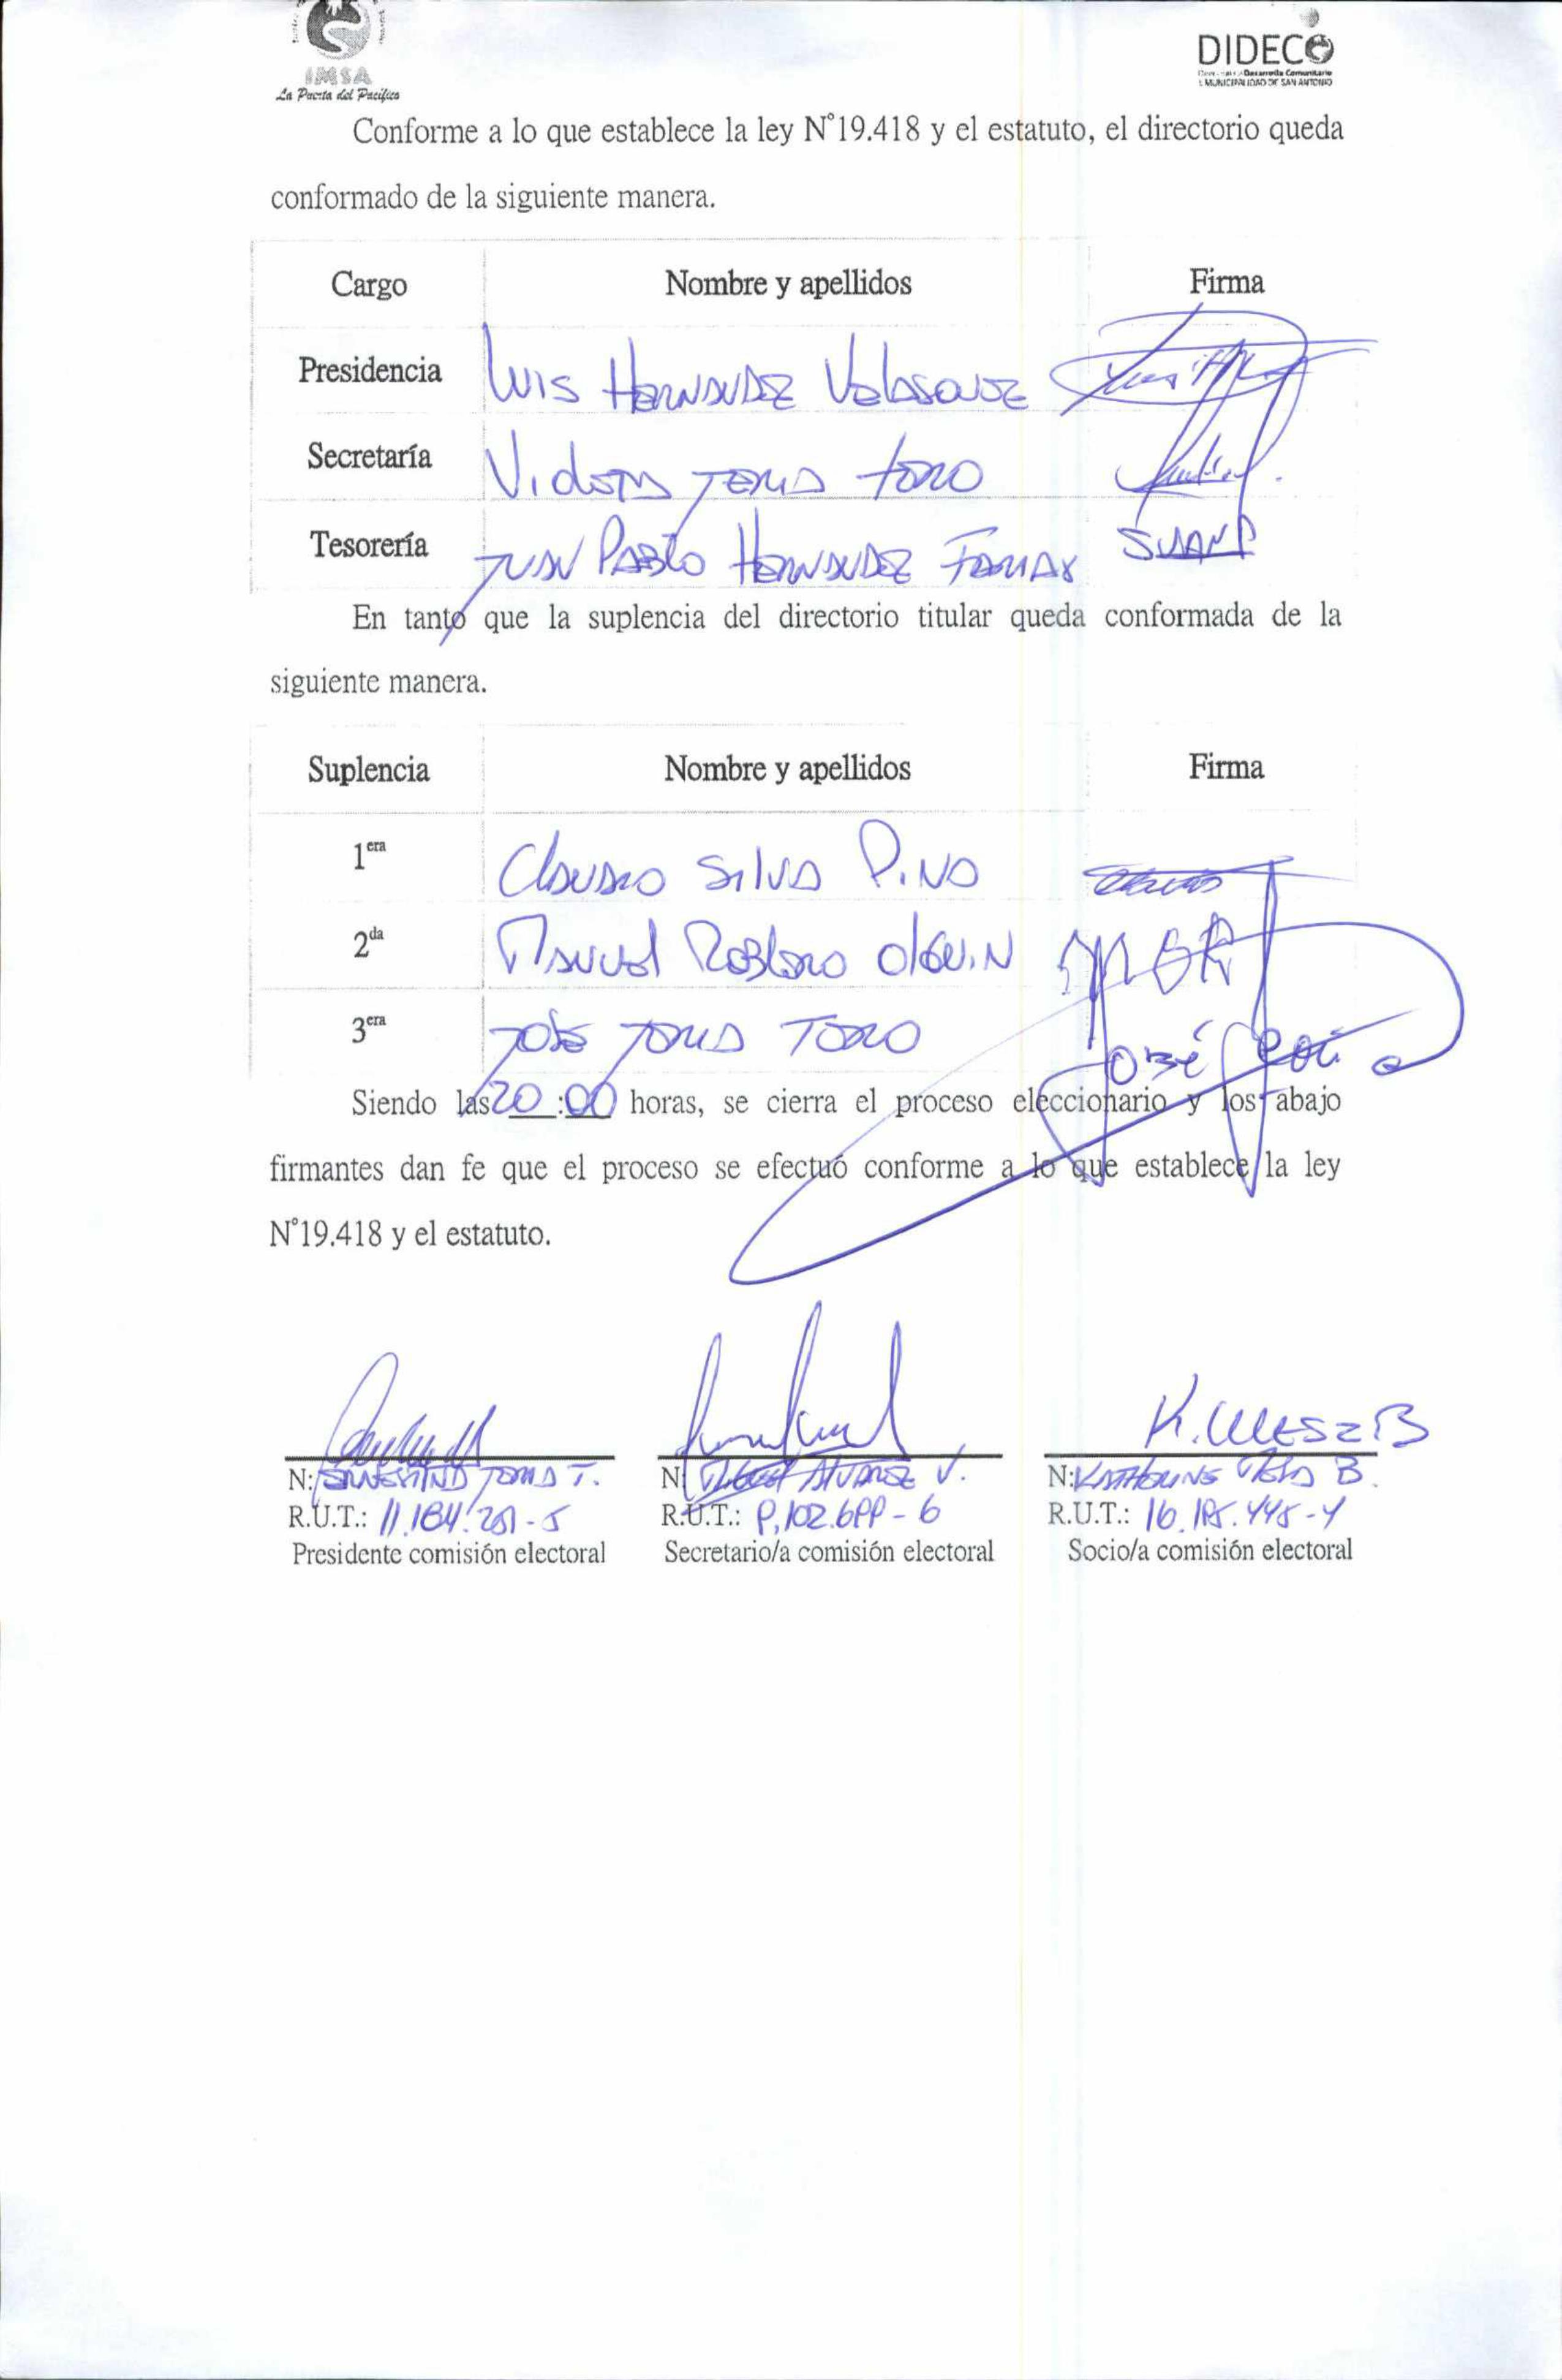 IMSA
La Puerta del Pacífico
DIDECO
Desarrollo Comunitario
I. MUNICIPALIDAD DE SAN ANTONIO
Conforme a lo que establece la ley N°19.418 y el estatuto, el directorio queda
conformado de la siguiente manera.
Cargo Nombre y apellidos Firma
Presidencia Luis Hernandez Velasquez
Secretaría Toro
Tesorería Juan Pablo Hernandez Farias JUANP
En tanto que la suplencia del directorio titular queda conformada de la
siguiente manera.
Suplencia Nombre y apellidos Firma
1era Claudio Silva Pino
2da Manuel Roblero Olguin MGR
3era Jose Toro José
Siendo las 20:00 horas, se cierra el proceso eleccionario y los abajo
firmantes dan fe que el proceso se efectuó conforme a lo que establece la ley
N°19.418 y el estatuto.
N: T. N: V. N: B.
R.U.T.: R.U.T.: R.U.T.:
Presidente comisión electoral Secretario/a comisión electoral Socio/a comisión electoral